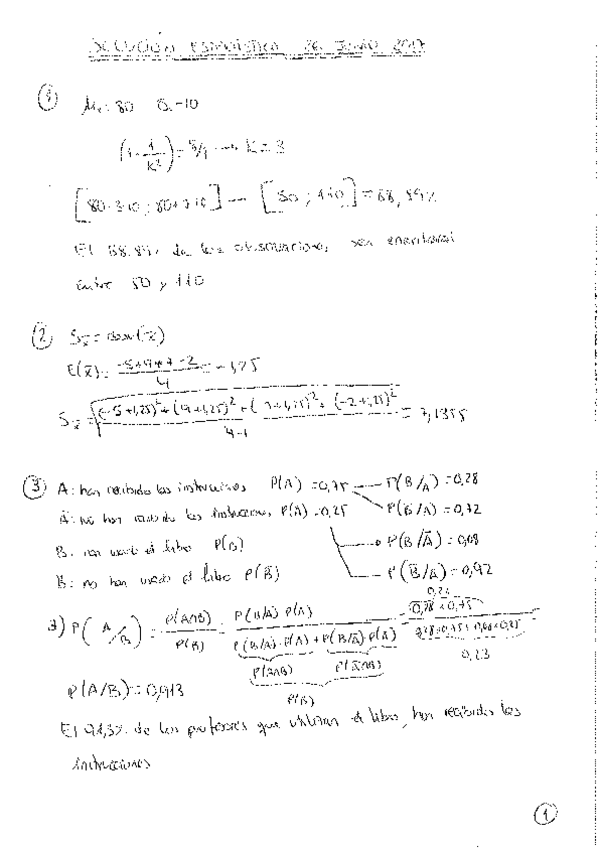 SOLUCIÓN ESTADÍSTICA 26 JUNIO 2017
① μx = 80 σ = 10
(1 - 1/K²) = 8/9 → K = 3
[80-3·10 ; 80+3·10] — [50 ; 110] = 88,89%
El 88.89% de las observaciones, se encontrará
entre 50 y 110
② Sx̄ = desv(x̄)
E(x̄) =
Sx̄ = = 7,1355
4-1
③ A: han recibido las instrucciones P(A) = 0,75 — P(B/A) = 0,28
Ā: no han recibido las instrucciones P(Ā) = 0,25 P(B̄/A) = 0,72
B: han usado el libro P(B) P(B/Ā) = 0,08
B̄: no han usado el libro P(B̄) P(B̄/Ā) = 0,92
0,21
P(A/B) = P(A∩B)/P(B) = P(B/A)·P(A) / P(B/A)·P(A) + P(B/Ā)·P(Ā) = 0,28·0,75 / 0,28·0,75 + 0,08·0,25 =
P(A∩B) P(Ā∩B) 0,23
P(B)
P(A/B) = 0,913
El 91,3% de los profesores que utilizan el libro, han recibido las
instrucciones
①